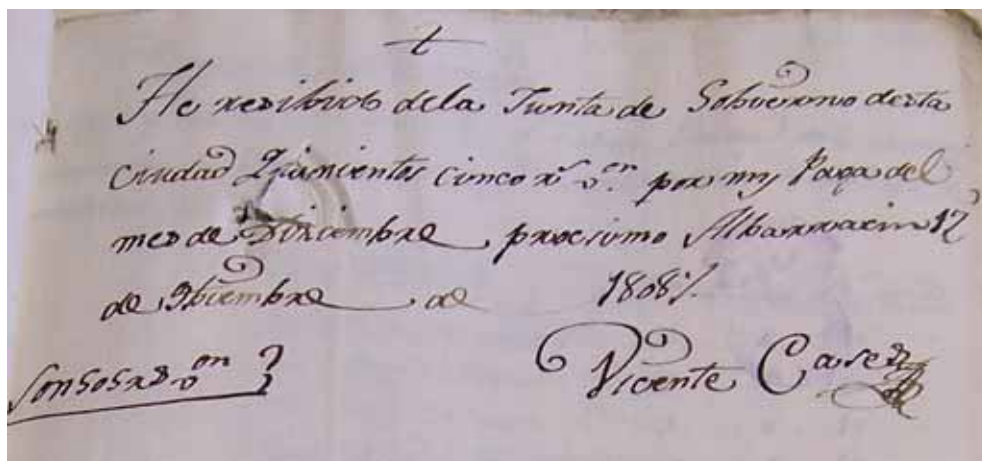 He resibido dela Junta de Gobierno desta
ciudad Quinientos cinco rˢ vⁿ. por my Paga del
mes de Diziembre procsimo Albarracin 17
de 9biembre de 1808 %.
Son 505 rˢ vᵒⁿ
Vicente